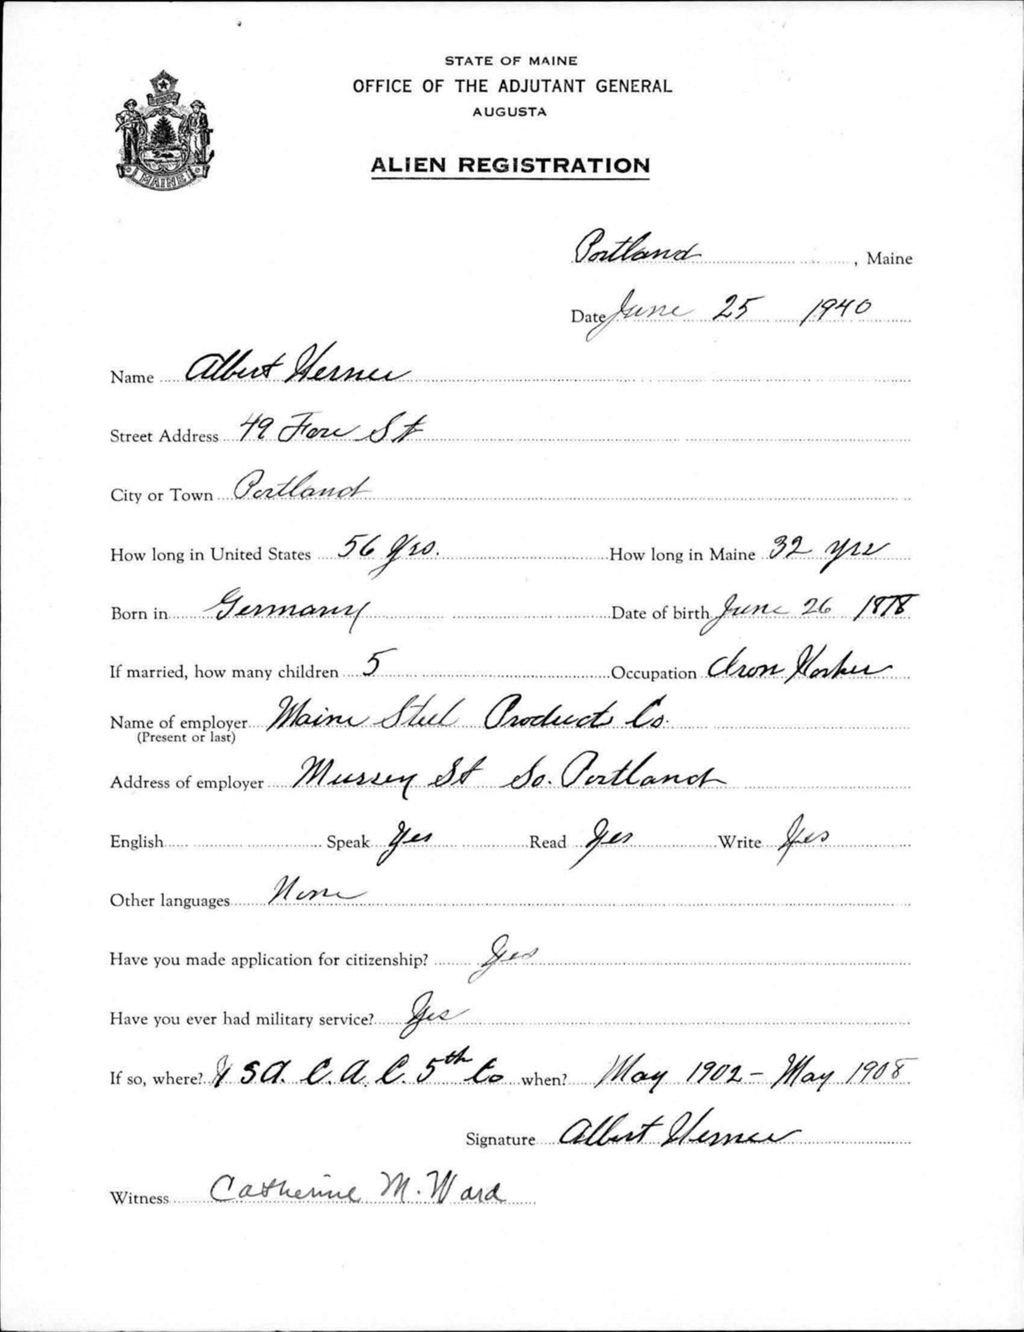 STATE OF MAINE
OFFICE OF THE ADJUTANT GENERAL
AUGUSTA
ALIEN REGISTRATION
MAINE
Portland, Maine
Date June 25 1940
Name Albert Werner
Street Address 49 Fore St
City or Town Portland
How long in United States 56 yrs. How long in Maine 32 yrs
Born in Germany Date of birth June 26 1878
If married, how many children 5 Occupation Iron Worker
Name of employer Maine Steel Products Co.
(Present or last)
Address of employer Mussey St So. Portland
English Speak Yes Read Yes Write Yes
Other languages None
Have you made application for citizenship? Yes
Have you ever had military service? Yes
If so, where? U S A. C. A. C. 5th Co when? May 1902 - May 1908
Signature Albert Werner
Witness Catherine M. Ward